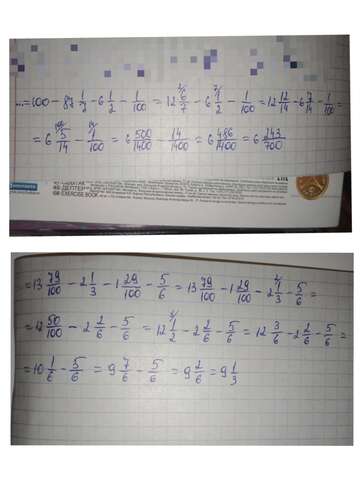 ...= 100 - 87 1/7 - 6 1/2 - 1/100 = 12 6/7 - 6 1/2 - 1/100 = 12 12/14 - 6 7/14 - 1/100 =
= 6 5/14 - 1/100 = 6 500/1400 - 14/1400 = 6 486/1400 = 6 243/700
ДЕПТЕР
EXERCISE BOOK
= 13 79/100 - 2 1/3 - 1 29/100 - 5/6 = 13 79/100 - 1 29/100 - 2 1/3 - 5/6 =
= 12 50/100 - 2 2/6 - 5/6 = 12 1/2 - 2 2/6 - 5/6 = 12 3/6 - 2 2/6 - 5/6 =
= 10 1/6 - 5/6 = 9 7/6 - 5/6 = 9 2/6 = 9 1/3